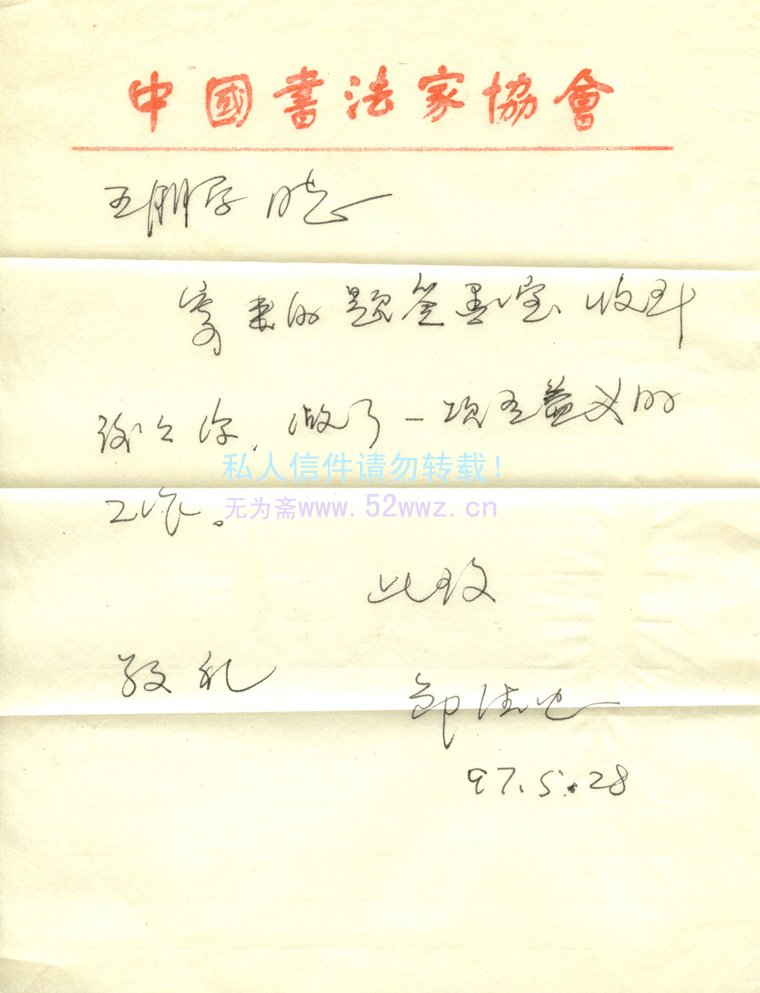 中國書法家協會
王鹏学同志
寄来的题签墨宝收到
谢谢你,做了一项有益义的
私人信件请勿转载!
无为斋www.52wwz.cn
工作。
此致
敬礼
邹德忠
97.5.28